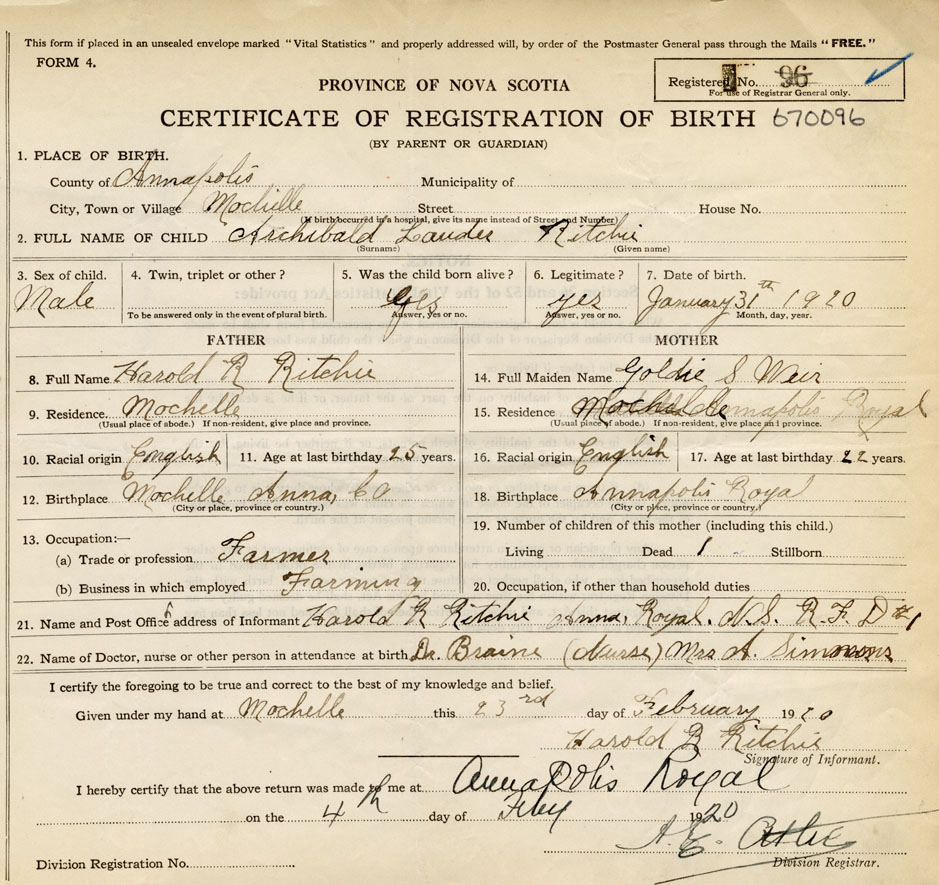 This form if placed in an unsealed envelope marked "Vital Statistics" and properly addressed will, by order of the Postmaster General pass through the Mails "FREE."
FORM 4.
Registered No. 96
For use of Registrar General only.
PROVINCE OF NOVA SCOTIA
CERTIFICATE OF REGISTRATION OF BIRTH 670096
(BY PARENT OR GUARDIAN)
1. PLACE OF BIRTH.
County of Annapolis Municipality of
City, Town or Village Mochelle Street House No.
(If birth occurred in a hospital, give its name instead of Street and Number)
2. FULL NAME OF CHILD Archibald Lauder Ritchie
(Surname) (Given name)
3. Sex of child. 4. Twin, triplet or other? 5. Was the child born alive? 6. Legitimate? 7. Date of birth.
Male Yes yes January 31th 1920
To be answered only in the event of plural birth. Answer, yes or no. Answer, yes or no. Month, day, year.
FATHER MOTHER
8. Full Name Harold R Ritchie 14. Full Maiden Name Goldie S Weir
9. Residence. Mochelle 15. Residence Annapolis Royal
(Usual place of abode.) If non-resident, give place and province. (Usual place of abode.) If non-resident, give place and province.
10. Racial origin English 11. Age at last birthday 25 years. 16. Racial origin English 17. Age at last birthday 22 years.
12. Birthplace Mochelle Anna, Co 18. Birthplace Annapolis Royal
(City or place, province or country.) (City or place, province or country.)
13. Occupation:— 19. Number of children of this mother (including this child.)
(a) Trade or profession Farmer Living Dead 1 Stillborn
(b) Business in which employed Farming 20. Occupation, if other than household duties
21. Name and Post Office address of Informant Harold R Ritchie Anna, Royal. N.S. R.F.D #1
22. Name of Doctor, nurse or other person in attendance at birth Dr. Braine (Nurse) Mrs A. Simmons
I certify the foregoing to be true and correct to the best of my knowledge and belief.
Given under my hand at Mochelle this 23rd day of February 1920
Harold R Ritchie
Signature of Informant.
I hereby certify that the above return was made to me at Annapolis Royal
on the 4th day of 1920
A. E.
Division Registrar.
Division Registration No.